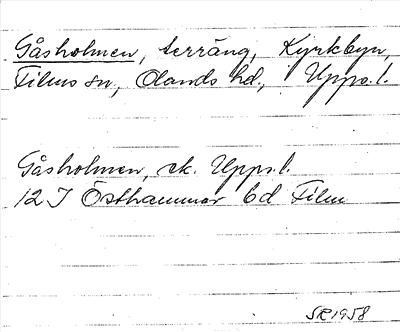 Gåsholmen, terräng, Kyrkbyn,
Films sn, Olands hd, Upps.l.
Gåsholmen, ek. Upps.l.
12 I Östhammar 6d Film
SR 1958